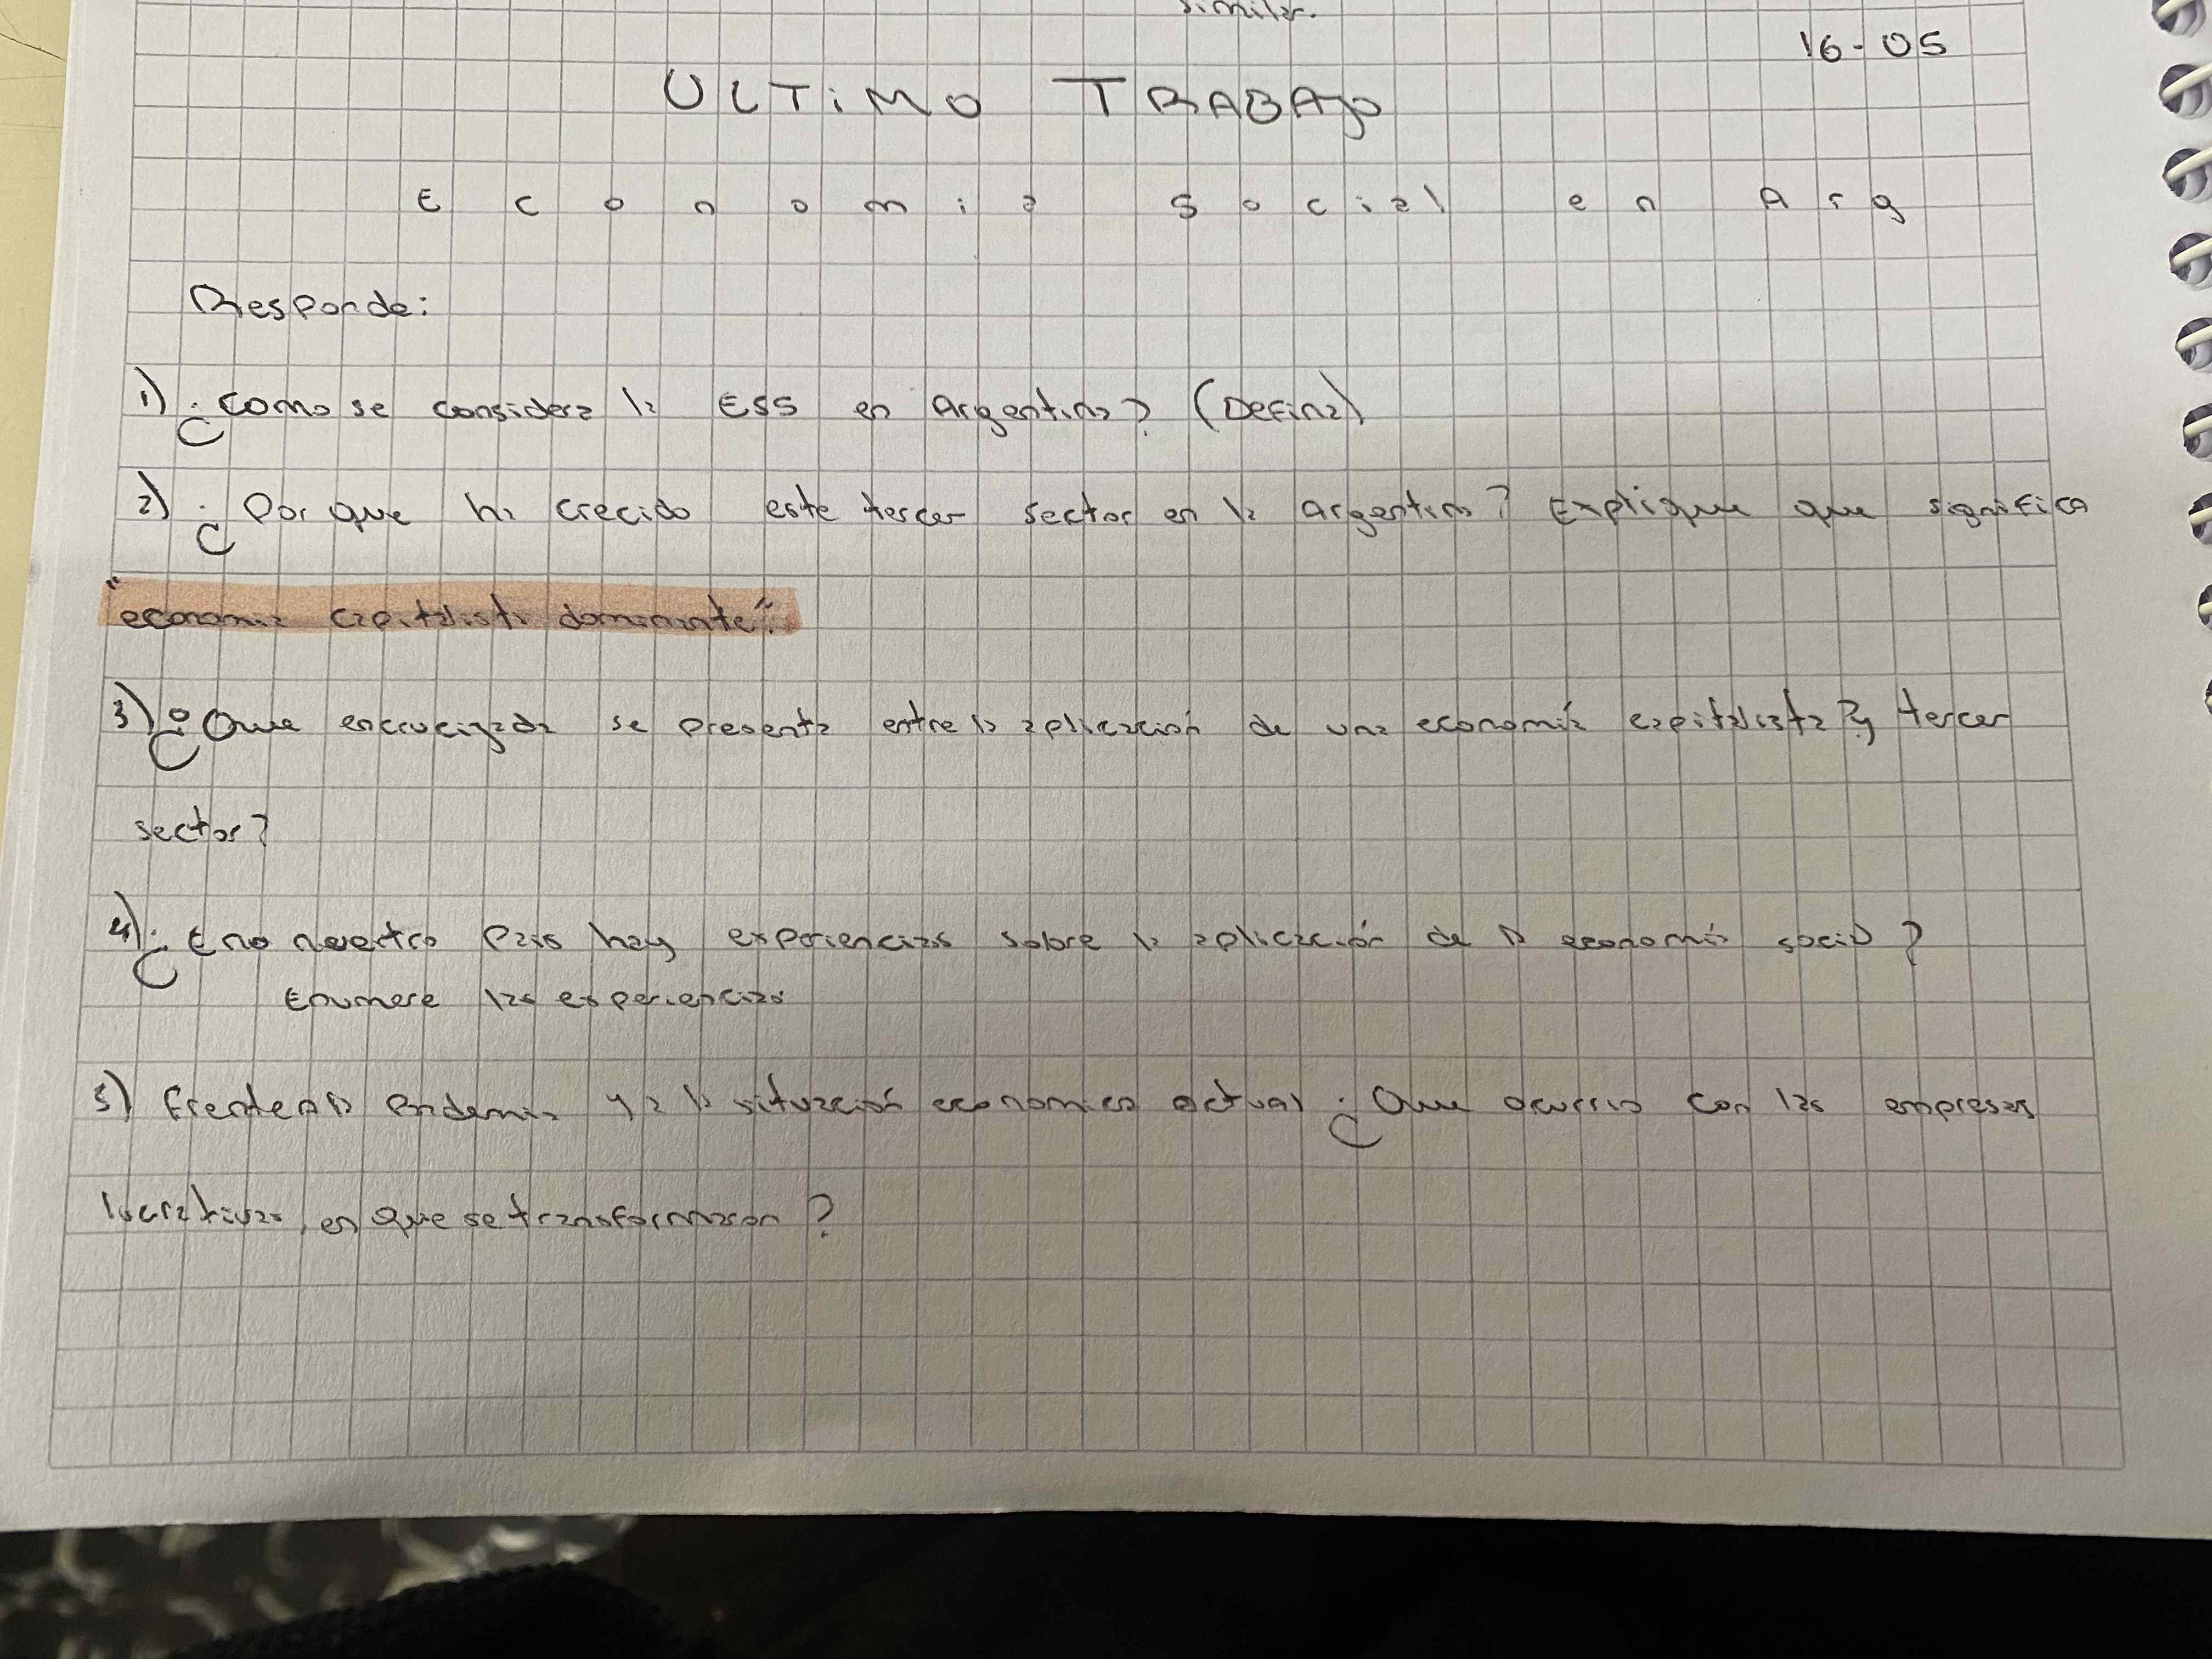 similar.
16-05
ULTiMO TRABAJO
Economia Social en Arg
Responde:
1) ¿Como se considera la ESS en Argentina? (Defina)
2) ¿Por que ha crecido este tercer sector en la argentina? Explique que significa
"economia capitalista dominante".
3) ¿Que encrucijada se presenta entre la aplicación de una economía capitalista? y tercer
sector?
4) ¿Eno nuestro Pais hay experiencias sobre la aplicación de la economía social?
Enumere las experiencias
5) Frente a la Pandemia y a la situación economica actual ¿Que ocurrio con las empresas
lucrativas, en que se transformaron?